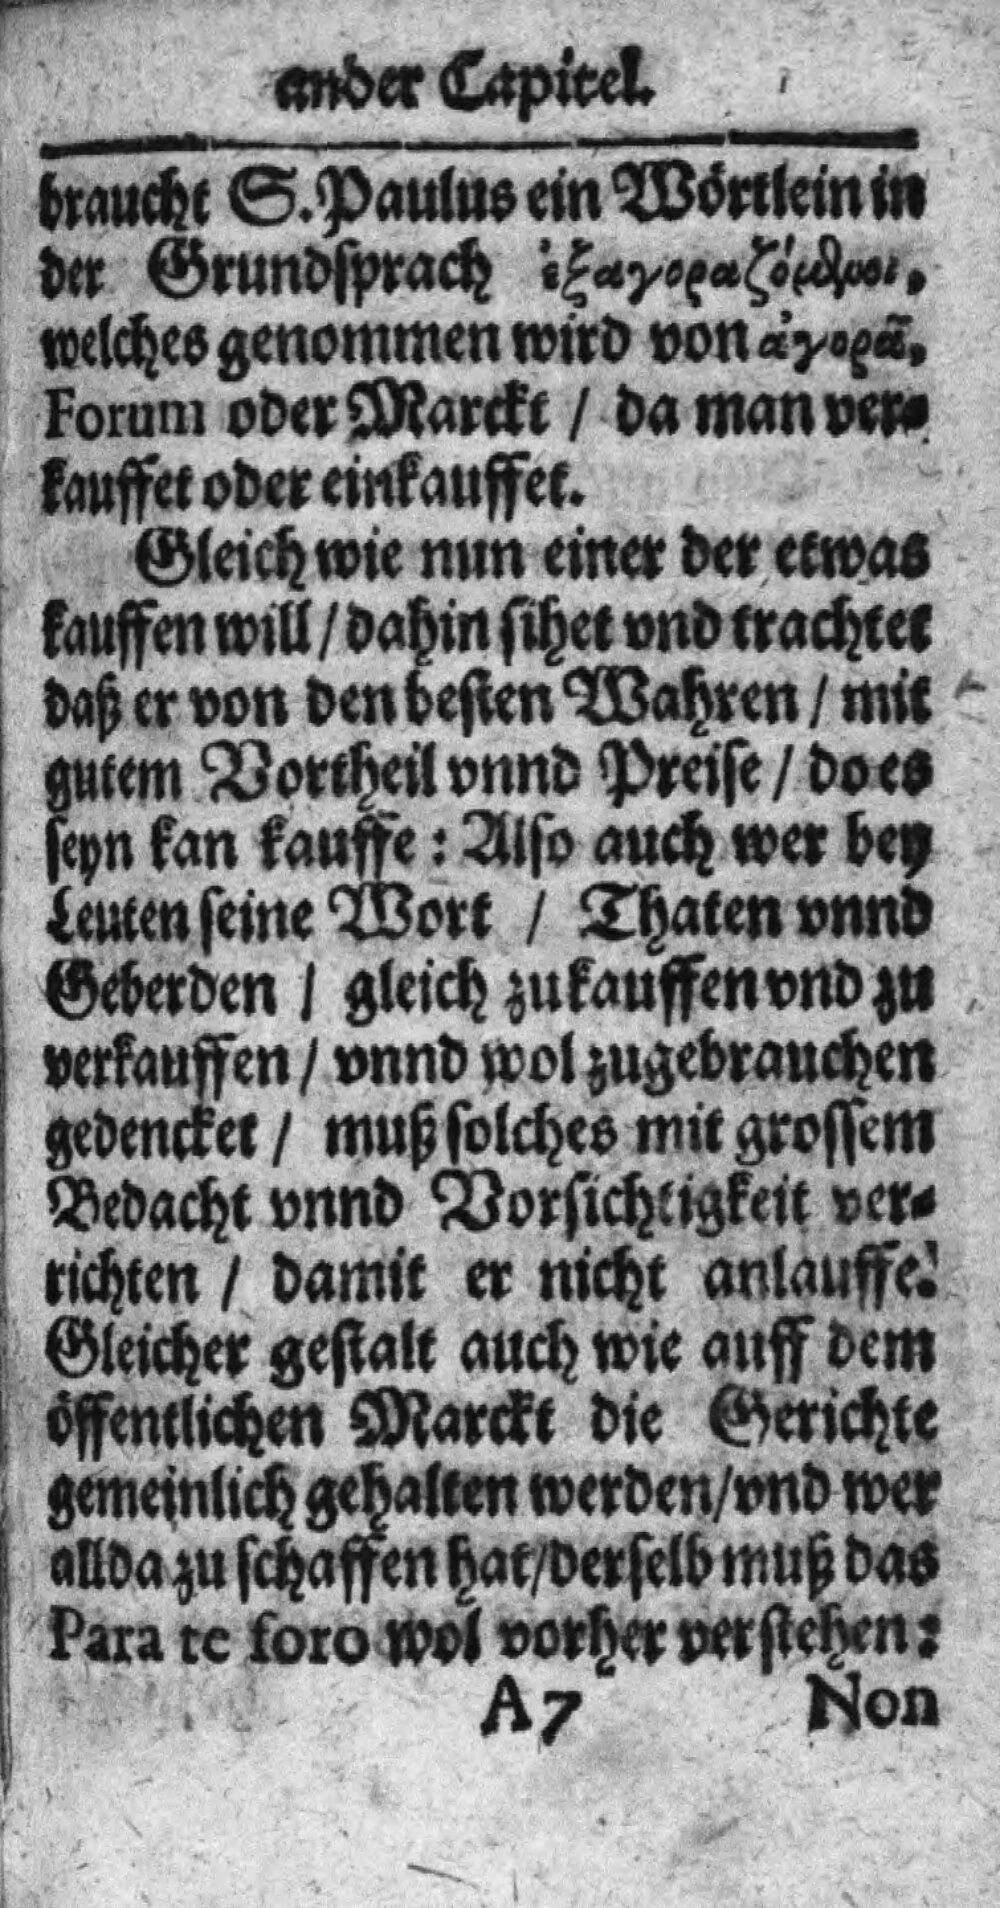 ander Capitel.
braucht S. Paulus ein Wörtlein in
der Grundsprach ἐξαγοραζόμενοι,
welches genommen wird von ἀγορᾶ,
Forum oder Marckt / da man ver-
kauffet oder einkauffet.
Gleich wie nun einer der etwas
kauffen will / dahin sihet vnd trachtet
daß er von den besten Wahren / mit
gutem Vortheil vnnd Preise / do es
seyn kan kauffe: Also auch wer bey
Leuten seine Wort / Thaten vnnd
Geberden / gleich zukauffen vnd zu
verkauffen / vnnd wol zugebrauchen
gedencket / muß solches mit grossem
Bedacht vnnd Vorsichtigkeit ver-
richten / damit er nicht anlauffe.
Gleicher gestalt auch wie auff dem
öffentlichen Marckt die Gerichte
gemeinlich gehalten werden/vnd wer
allda zu schaffen hat/derselb muß das
Para te foro wol vorher verstehen:
A 7 Non